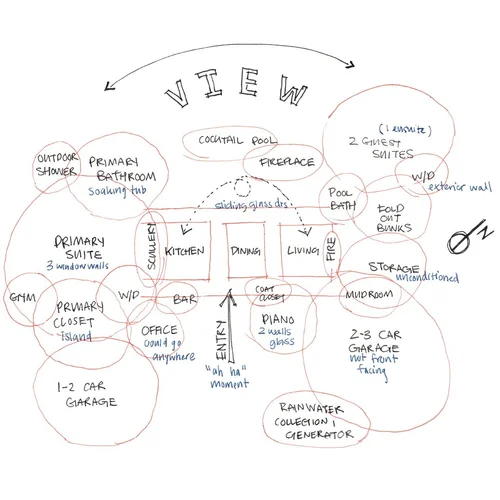 VIEW
COCKTAIL POOL
FIREPLACE
(1 ensuite)
2 GUEST
SUITES
OUTDOOR
SHOWER
PRIMARY
BATHROOM
Soaking tub
W/D
exterior wall
POOL
BATH
sliding glass drs
FOLD
OUT
BUNKS
N
PRIMARY
SUITE
3 window walls
SCULLERY
KITCHEN
DINING
LIVING
FIRE
STORAGE
unconditioned
GYM
PRIMARY
CLOSET
island
W/D
BAR
COAT
CLOSET
MUDROOM
OFFICE
could go
anywhere
ENTRY
"ah ha"
moment
PIANO
2 walls
glass
2-3 CAR
GARAGE
not front
facing
1-2 CAR
GARAGE
RAINWATER
COLLECTION,
GENERATOR